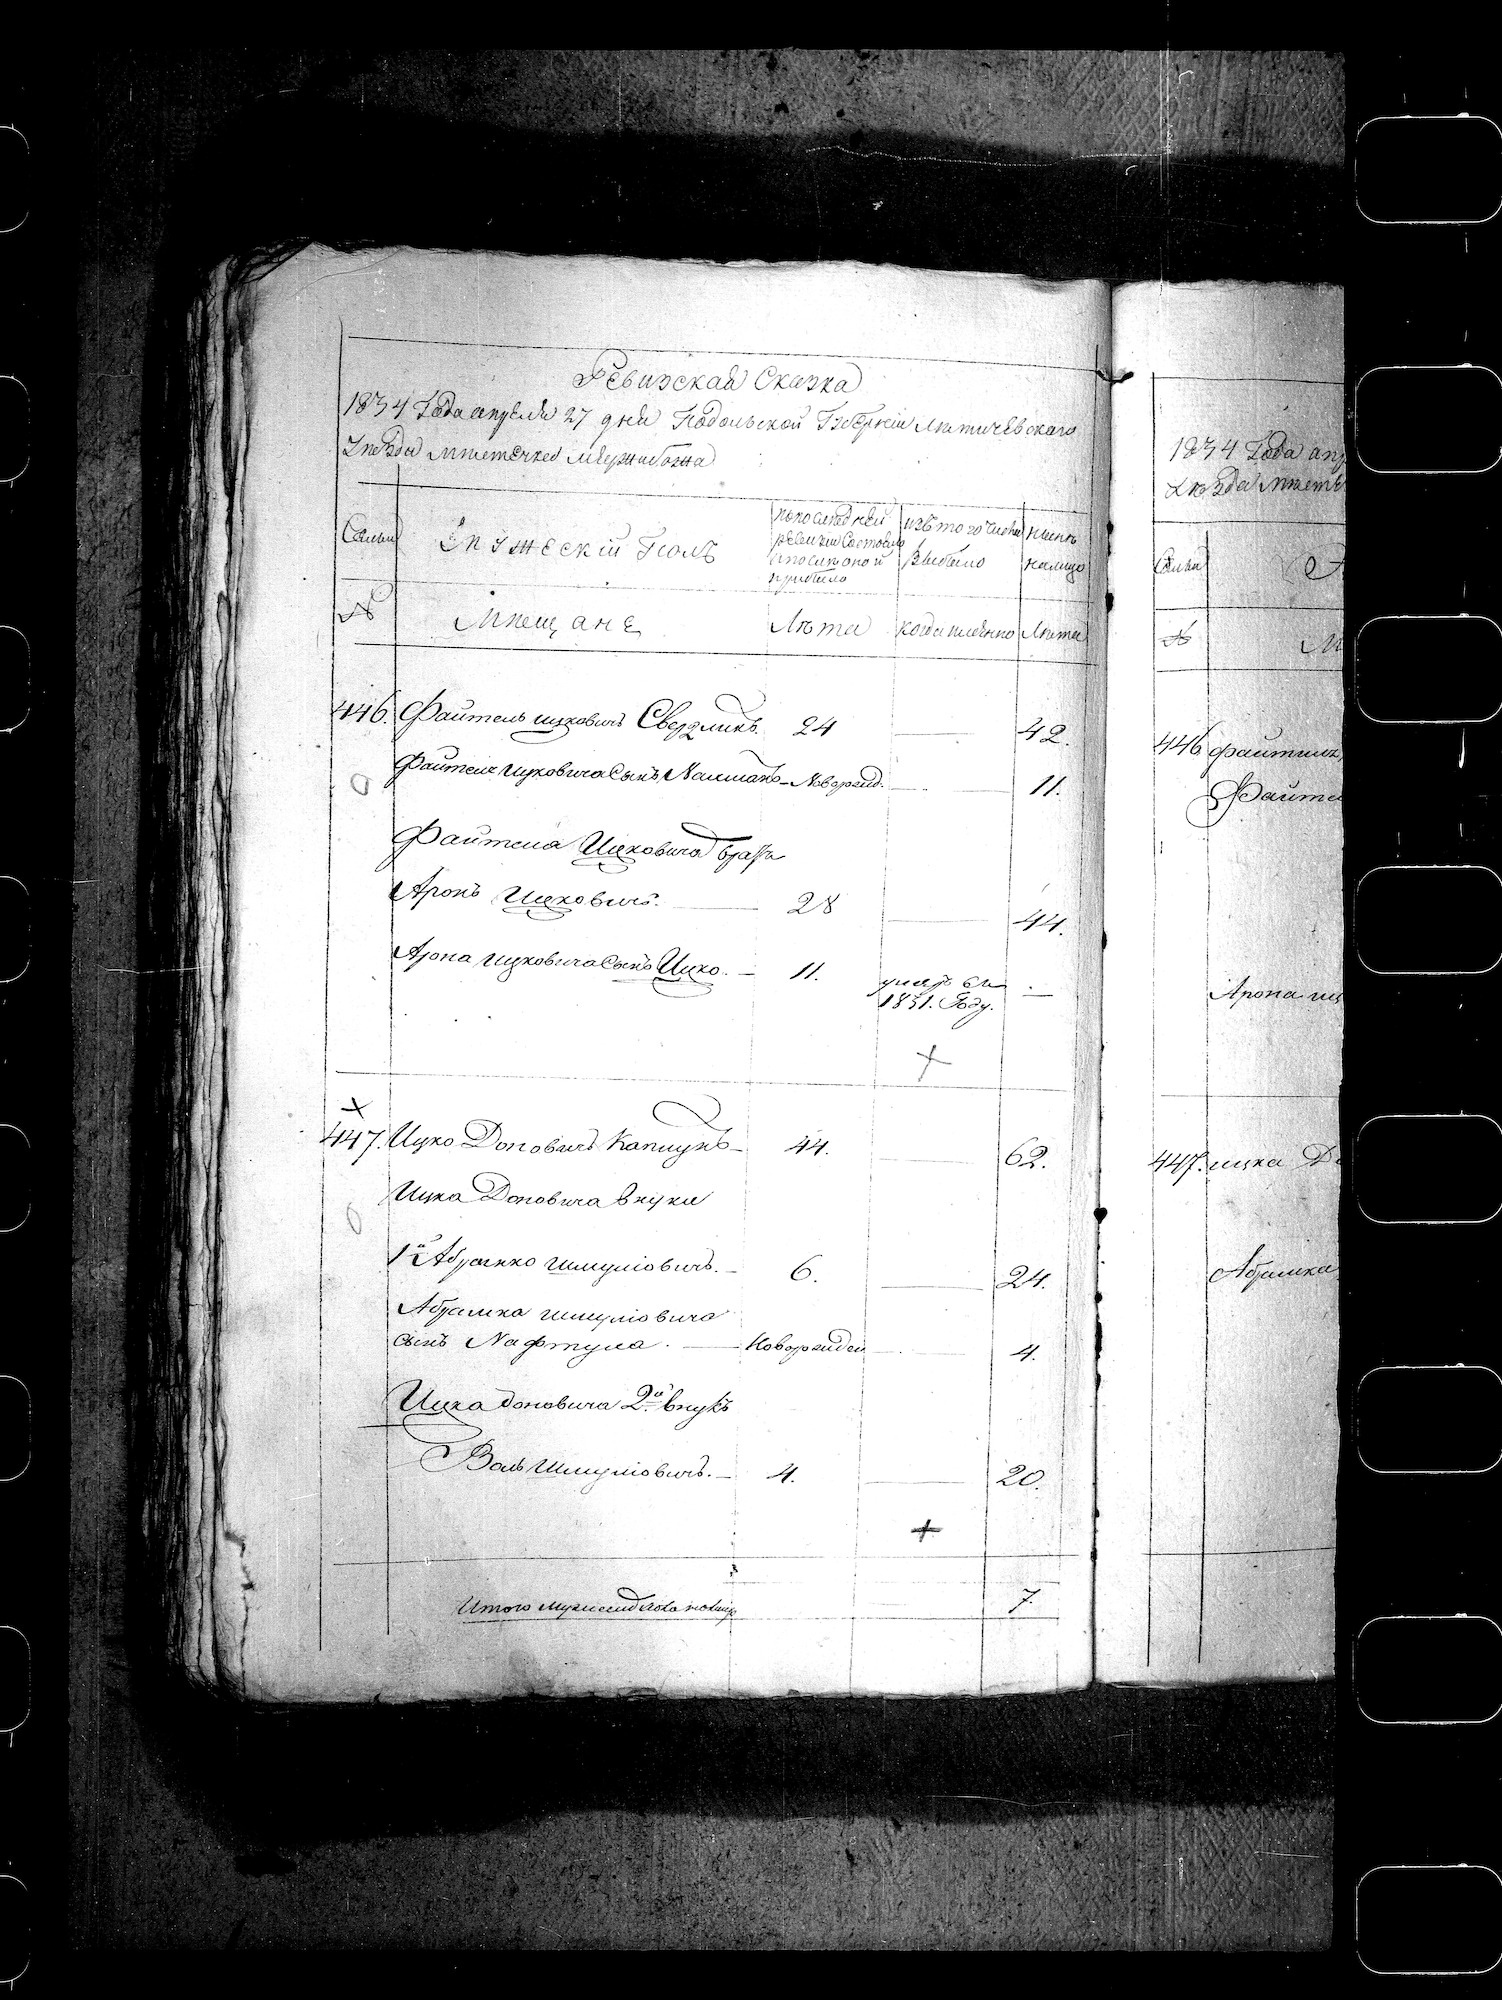 Ревизская Сказка
1834 Года апреля 27 дня Подольской Губернии Литичевского
Уезда местечка Межибожа
Семьи
Мужеский Полъ
по последней
ревизии состояло
и после оной
прибыло
изъ того числа
выбыло
ныне
налицо
№
Мещане
Лета
когда именно
Лета
446. Файтель Ицковичъ Свердликъ. 24 42.
Файтеля Ицковича Сынъ Нахманъ - Новорожд. 11.
Файтеля Ицковича братъ
Аронъ Ицковичъ. 28 44.
Арона Ицковича Сынъ Ицко. - 11.
умеръ въ
1831. Году.
447. Ицко Доновичъ Капцунъ - 44. 62.
Ицка Доновича внуки
1й Абрамко Шмуліовичъ. - 6. 24.
Абрамка Шмуліовича
сынъ Нафтула. - Новорожден 4.
Ицка Доновича 2й внукъ
Воль Шмуліовичъ. - 4. 20.
Итого мужеска пола налицо 7.
1834 Года апр
Уезда Месте
Семьи
№
М
446 Файтеля
Файте
Арона Иц
447. Ицка До
Абрамка